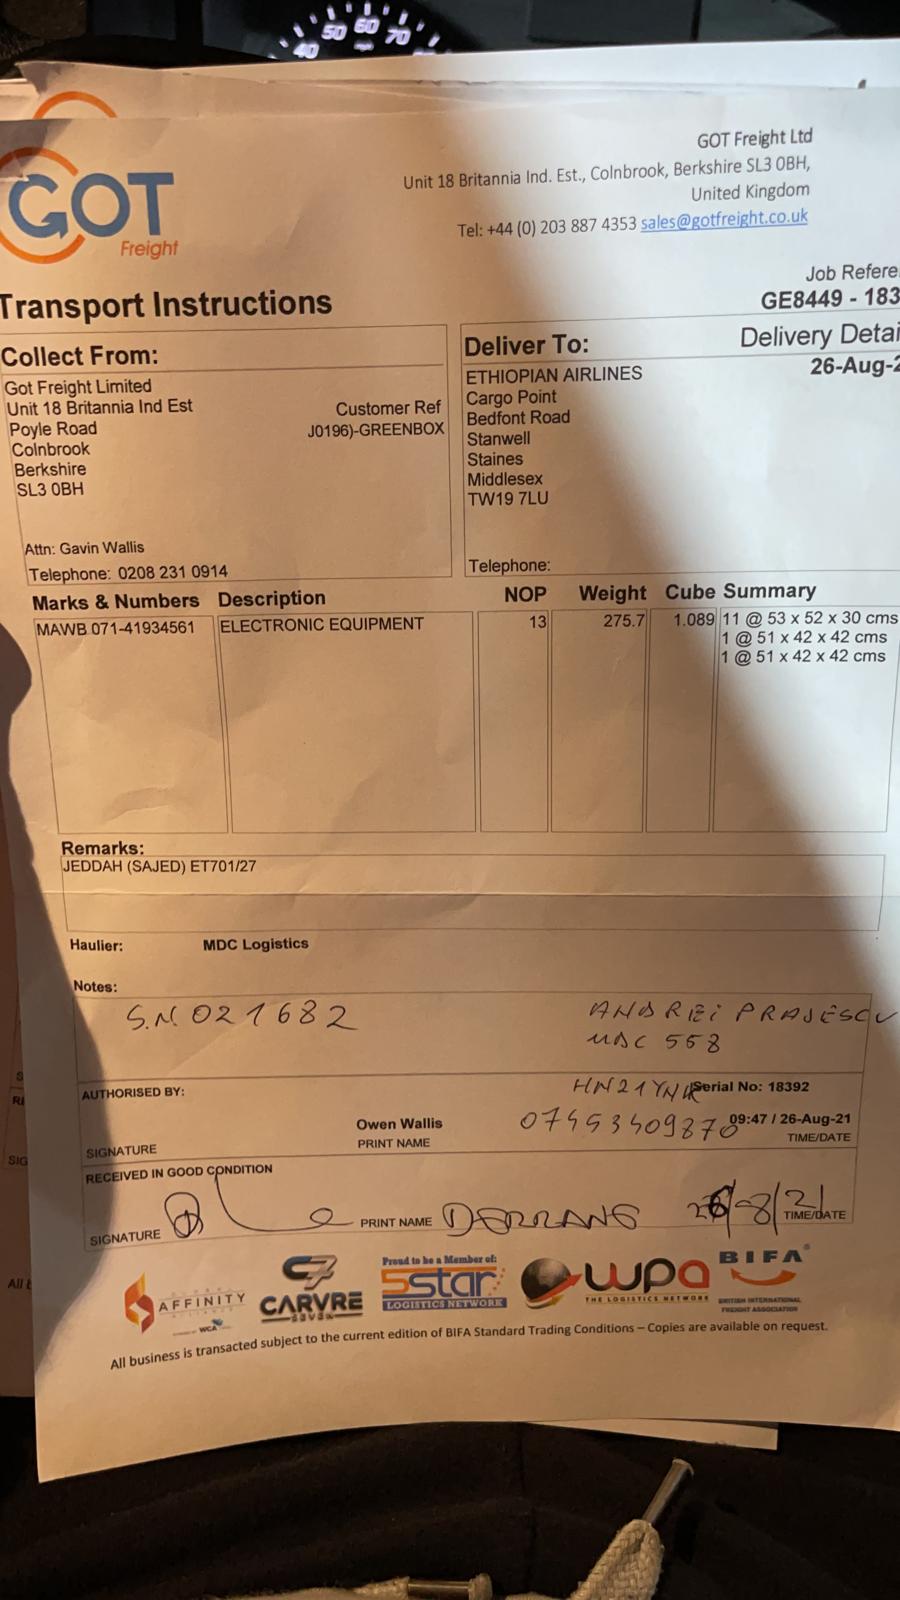 40 50 60 70
mph
GOT
Freight
GOT Freight Ltd
Unit 18 Britannia Ind. Est., Colnbrook, Berkshire SL3 0BH,
United Kingdom
Tel: +44 (0) 203 887 4353 sales@gotfreight.co.uk
Job Refere
Transport Instructions
GE8449 - 183
Delivery Detai
26-Aug-2
Collect From:
Got Freight Limited
Unit 18 Britannia Ind Est
Poyle Road
Colnbrook
Berkshire
SL3 0BH
Customer Ref
J0196)-GREENBOX
Attn: Gavin Wallis
Telephone: 0208 231 0914
Deliver To:
ETHIOPIAN AIRLINES
Cargo Point
Bedfont Road
Stanwell
Staines
Middlesex
TW19 7LU
Telephone:
Marks & Numbers Description NOP Weight Cube Summary
MAWB 071-41934561 ELECTRONIC EQUIPMENT 13 275.7 1.089 11 @ 53 x 52 x 30 cms
1 @ 51 x 42 x 42 cms
1 @ 51 x 42 x 42 cms
Remarks:
JEDDAH (SAJED) ET701/27
Haulier: MDC Logistics
Notes:
S.N 021682
ANDREi PRAJESCU
MDC 558
HN21YNK
07453409870
AUTHORISED BY:
Serial No: 18392
Owen Wallis
09:47 / 26-Aug-21
SIGNATURE PRINT NAME TIME/DATE
RECEIVED IN GOOD CONDITION
SIGNATURE PRINT NAME 26/8/21 TIME/DATE
AFFINITY
WCA
C7
CARVRE
SEVEN
Proud to be a Member of:
5star
LOGISTICS NETWORK
wpa
THE LOGISTICS NETWORK
BIFA
BRITISH INTERNATIONAL
FREIGHT ASSOCIATION
All business is transacted subject to the current edition of BIFA Standard Trading Conditions – Copies are available on request.